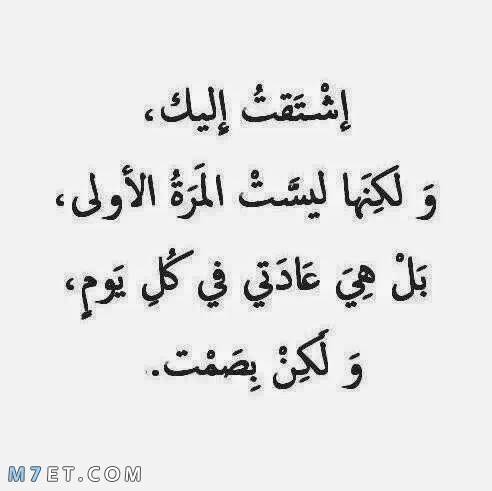 إشْتَقتُ إليك،
وَ لَكِنَها ليسَّتْ المَرَةُ الأولى،
بَلْ هِيَ عَادَتي في كُلِ يَومٍ،
وَ لَكِنْ بِصَمْت.
M7ET.COM